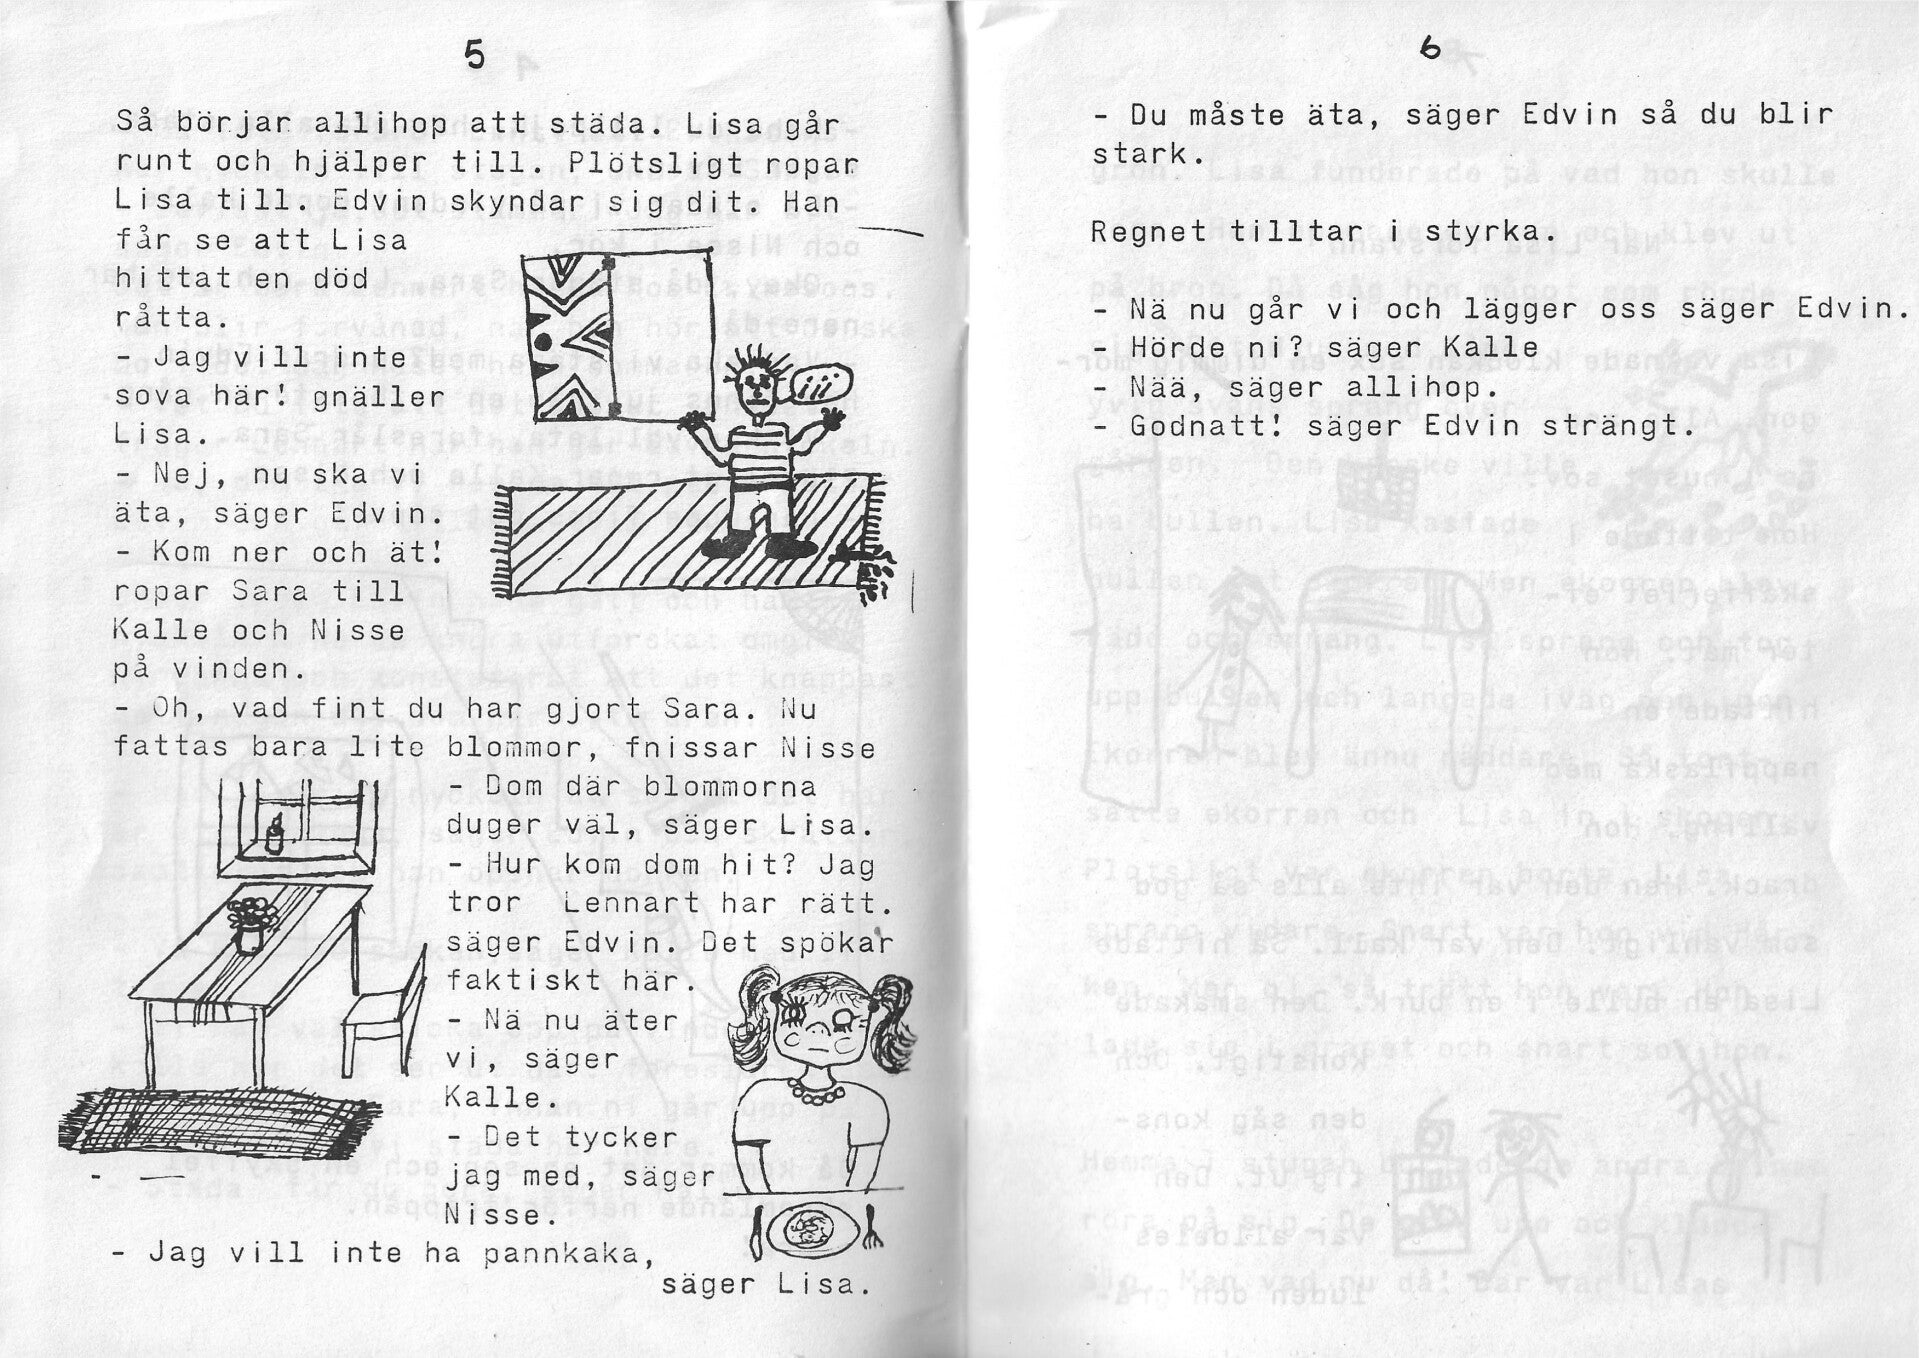 5
Så börjar allihop att städa. Lisa går
runt och hjälper till. Plötsligt ropar
Lisa till. Edvin skyndar sig dit. Han
får se att Lisa
hittat en död
råtta.
- Jag vill inte
sova här! gnäller
Lisa.
- Nej, nu ska vi
äta, säger Edvin.
- Kom ner och ät!
ropar Sara till
Kalle och Nisse
på vinden.
- Oh, vad fint du har gjort Sara. Nu
fattas bara lite blommor, fnissar Nisse
- Dom där blommorna
duger väl, säger Lisa.
- Hur kom dom hit? Jag
tror Lennart har rätt.
säger Edvin. Det spökar
faktiskt här.
- Nä nu äter
vi, säger
Kalle.
- Det tycker
jag med, säger
Nisse.
- Jag vill inte ha pannkaka,
säger Lisa.
iii
6
- Du måste äta, säger Edvin så du blir
stark.
Regnet tilltar i styrka.
- Nä nu går vi och lägger oss säger Edvin.
- Hörde ni? säger Kalle
- Nää, säger allihop.
- Godnatt! säger Edvin strängt.